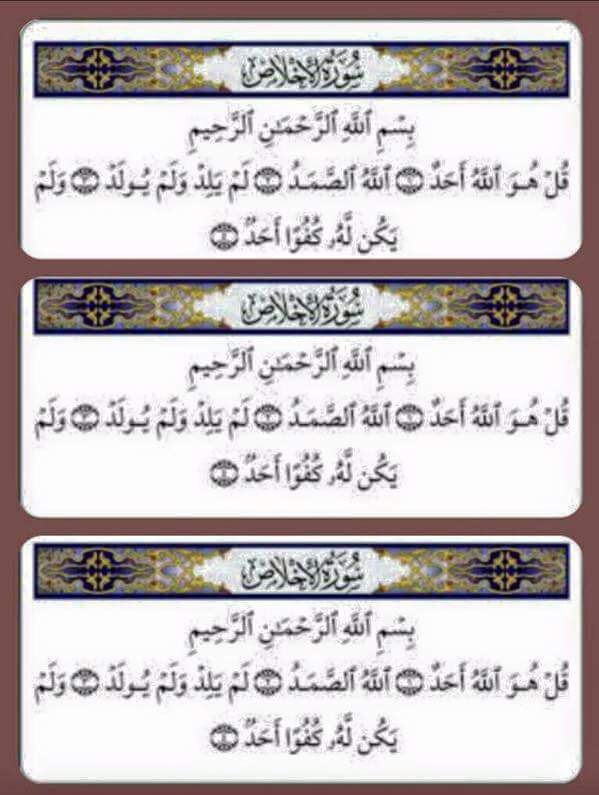 سُورَةُ الإِخْلَاصِ
بِسْمِ ٱللَّهِ ٱلرَّحْمَـٰنِ ٱلرَّحِيمِ
قُلْ هُوَ ٱللَّهُ أَحَدٌ ۝١ ٱللَّهُ ٱلصَّمَدُ ۝٢ لَمْ يَلِدْ وَلَمْ يُولَدْ ۝٣ وَلَمْ
يَكُن لَّهُۥ كُفُوًا أَحَدٌۢ ۝٤
سُورَةُ الإِخْلَاصِ
بِسْمِ ٱللَّهِ ٱلرَّحْمَـٰنِ ٱلرَّحِيمِ
قُلْ هُوَ ٱللَّهُ أَحَدٌ ۝١ ٱللَّهُ ٱلصَّمَدُ ۝٢ لَمْ يَلِدْ وَلَمْ يُولَدْ ۝٣ وَلَمْ
يَكُن لَّهُۥ كُفُوًا أَحَدٌۢ ۝٤
سُورَةُ الإِخْلَاصِ
بِسْمِ ٱللَّهِ ٱلرَّحْمَـٰنِ ٱلرَّحِيمِ
قُلْ هُوَ ٱللَّهُ أَحَدٌ ۝١ ٱللَّهُ ٱلصَّمَدُ ۝٢ لَمْ يَلِدْ وَلَمْ يُولَدْ ۝٣ وَلَمْ
يَكُن لَّهُۥ كُفُوًا أَحَدٌۢ ۝٤